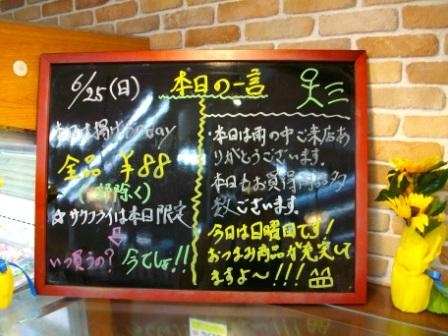 6/25(日)
本日の一言
揚げ
day
全品 ¥88
除く)
☆サクフライは本日限定
いつ買うの? 今でしょ!!
・本日は雨の中ご来店あ
りがとうございます。
本日もお買得商品多
数ございます。
今日は日曜日です!
おつまみ商品が充実して
ますよ~!!!